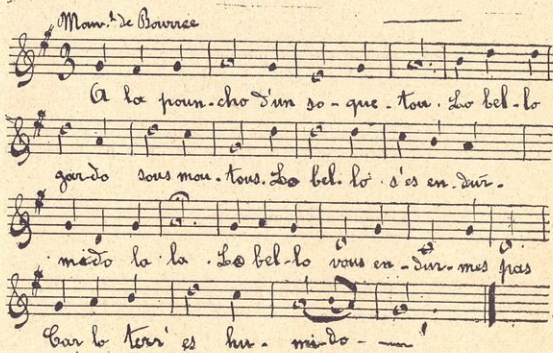 Mouv.t de Bourrée
A la poun-cho d'un so-que-tou. Lo bel-lo
gardo sous mou-tous. Lo bel-lo s'es en-dur-
mido la la. Lo bel-lo vous en-dur-mes pas
Car lo terr' es hu-mi-do